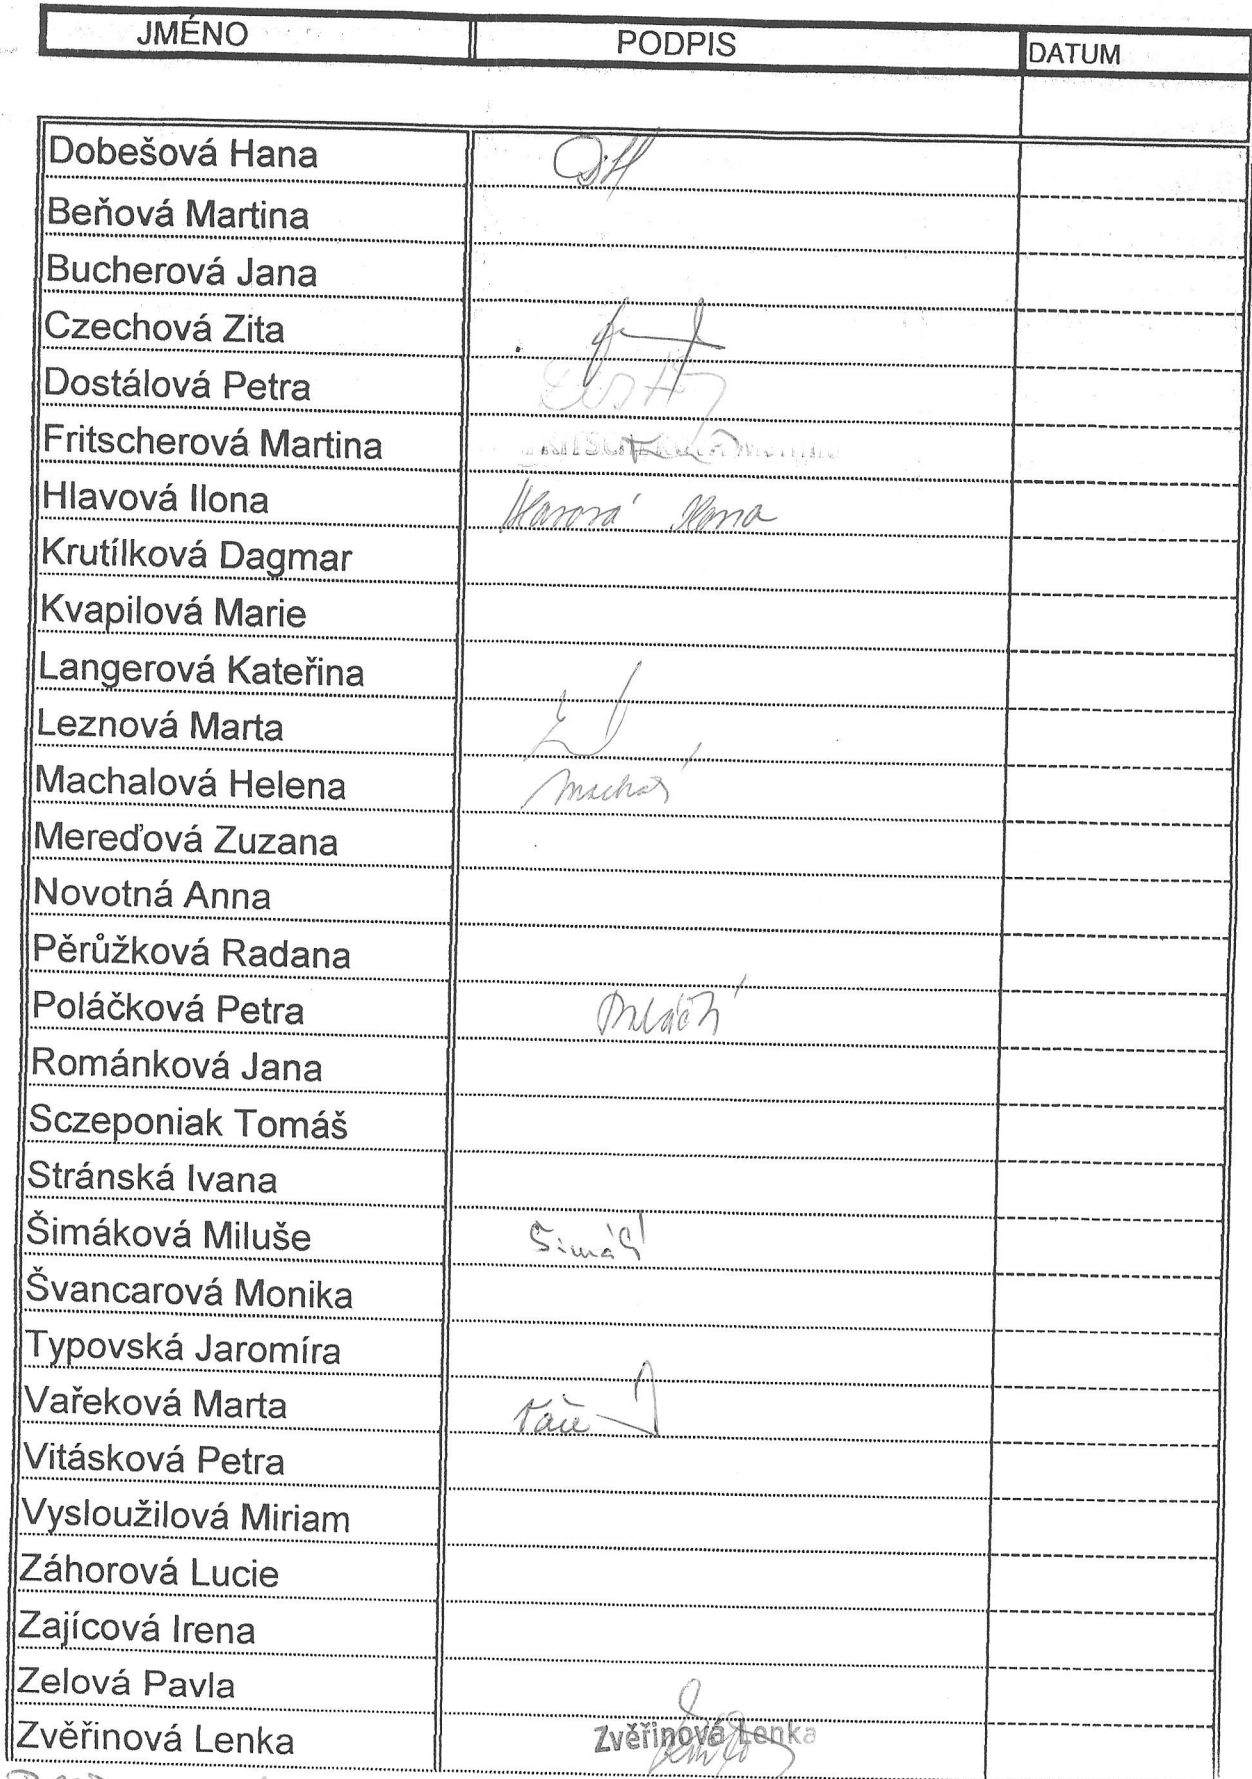 JMÉNO PODPIS DATUM
Dobešová Hana
Beňová Martina
Bucherová Jana
Czechová Zita
Dostálová Petra
Fritscherová Martina
Hlavová Ilona Hlavová Ilona
Krutílková Dagmar
Kvapilová Marie
Langerová Kateřina
Leznová Marta
Machalová Helena
Mereďová Zuzana
Novotná Anna
Pěrůžková Radana
Poláčková Petra
Románková Jana
Sczeponiak Tomáš
Stránská Ivana
Šimáková Miluše
Švancarová Monika
Typovská Jaromíra
Vařeková Marta
Vitásková Petra
Vysloužilová Miriam
Záhorová Lucie
Zajícová Irena
Zelová Pavla
Zvěřinová Lenka Zvěřinová Lenka